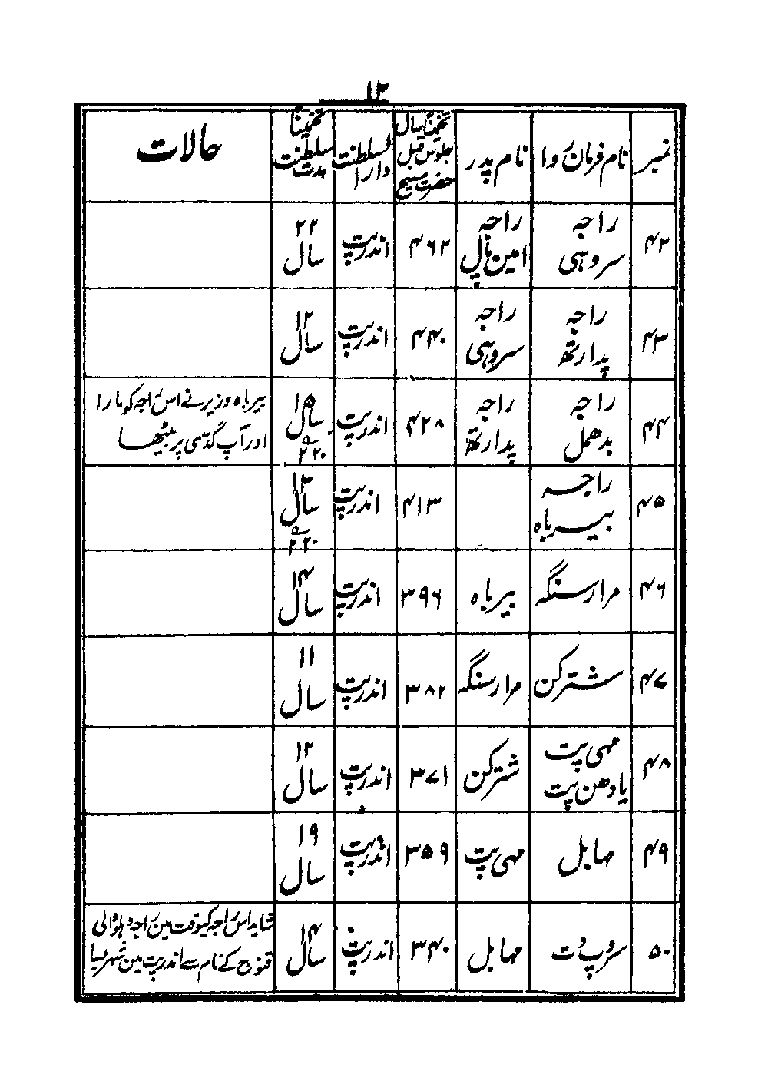 ۱۳
نمبر | نام فرمان روا | نام پدر | تخمیناً سال جلوس قبل حضرت مسیح | دارالسلطنت | تخمیناً مدت سلطنت | حالات
۴۲ | راجہ سروہی | راجہ امین پال | ۴۶۲ | اندرپت | ۲۲ سال |
۴۳ | راجہ پدارتھ | راجہ سروہی | ۴۴۰ | اندرپت | ۱۲ سال |
۴۴ | راجہ بدھمل | راجہ پدارتھ | ۴۲۸ | اندرپت | ۱۵ سال ۲۲۰ | بیرباہ وزیر نے اس راجہ کو مارا اور آپ گدّی پر بیٹھا
۴۵ | راجہ بیرباہ | | ۴۱۳ | اندرپت | ۱۳ سال ۲۲۰ |
۴۶ | مرارسنگہ | بیرباہ | ۳۹۶ | اندرپت | ۱۴ سال |
۴۷ | شترکن | مرارسنگہ | ۳۸۲ | اندرپت | ۱۱ سال |
۴۸ | مہی پت یا دھن پت | شترکن | ۳۷۱ | اندرپت | ۱۲ سال |
۴۹ | مہابل | مہی پت | ۳۵۹ | اندرپت | ۱۹ سال |
۵۰ | سروپ دت | مہابل | ۳۴۰ | اندرپت | ۱۴ سال | شاید اس راجہ کیوقت مین راجہ دہلو والی قنوج کے نام سے اندرپت مین شہر بسا